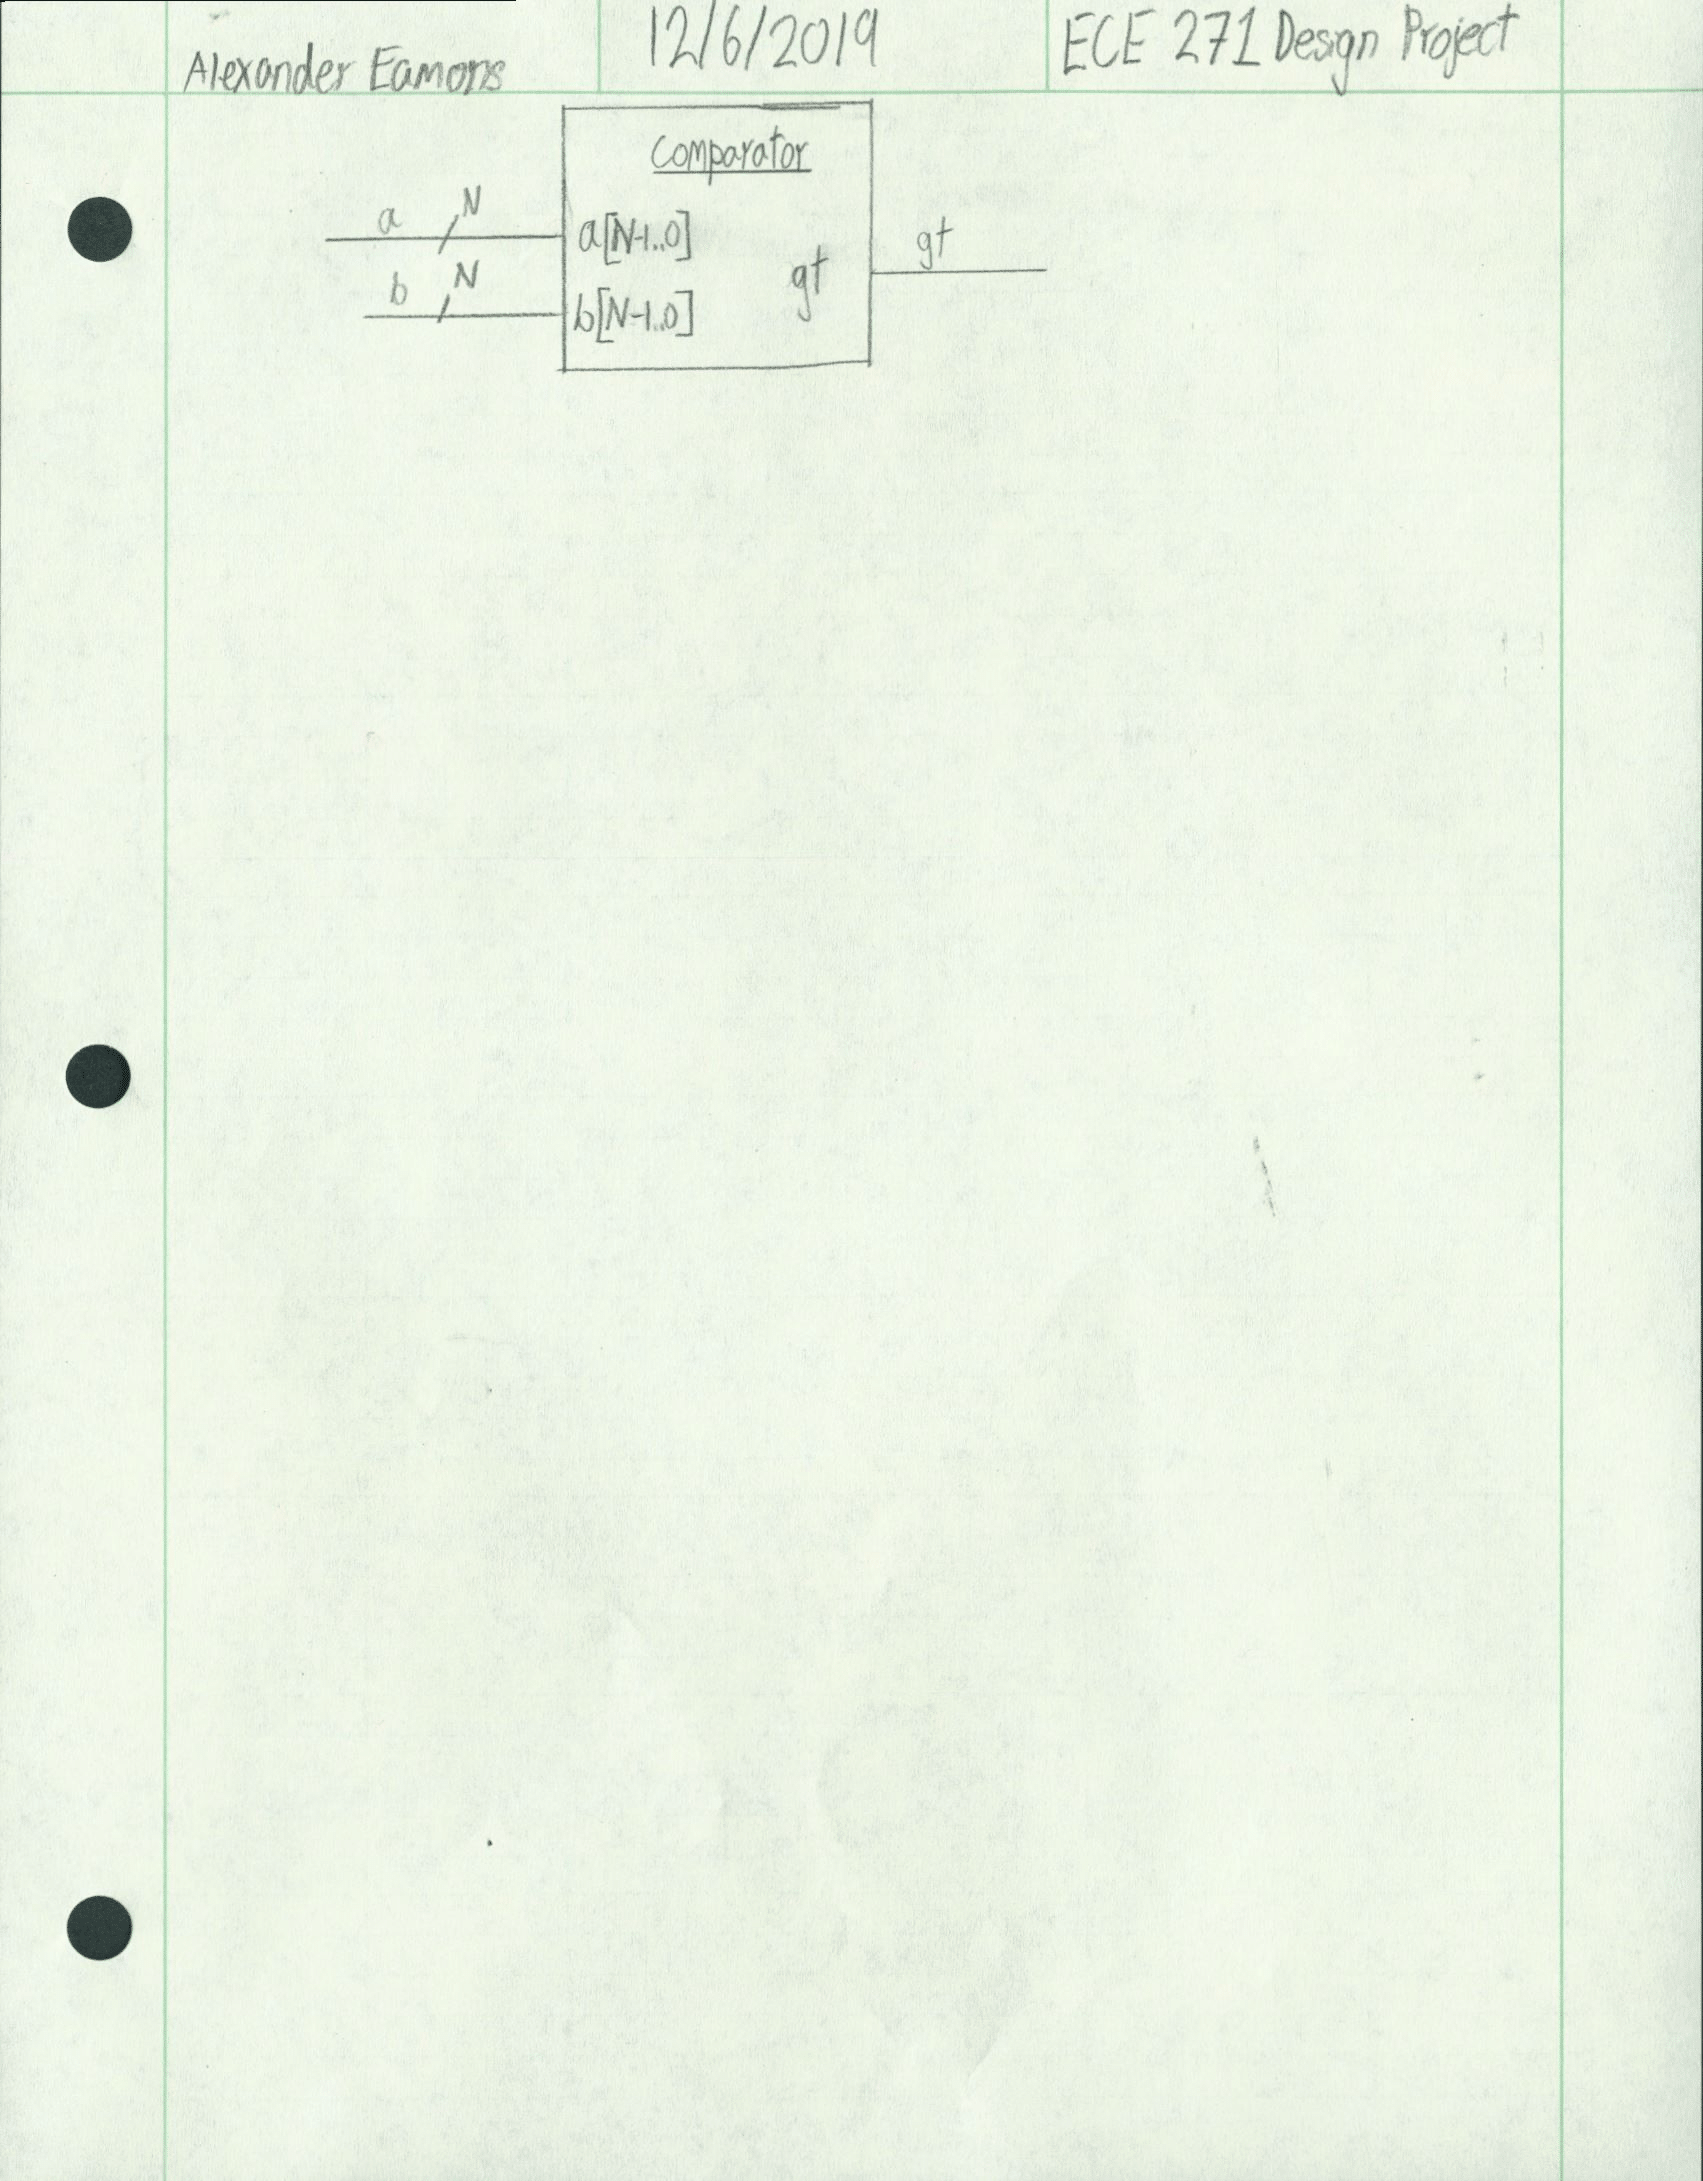 Alexander Eamons
12/6/2019
ECE 271 Design Project
Comparator
a
N
a[N-1..0]
gt
gt
b
N
b[N-1..0]